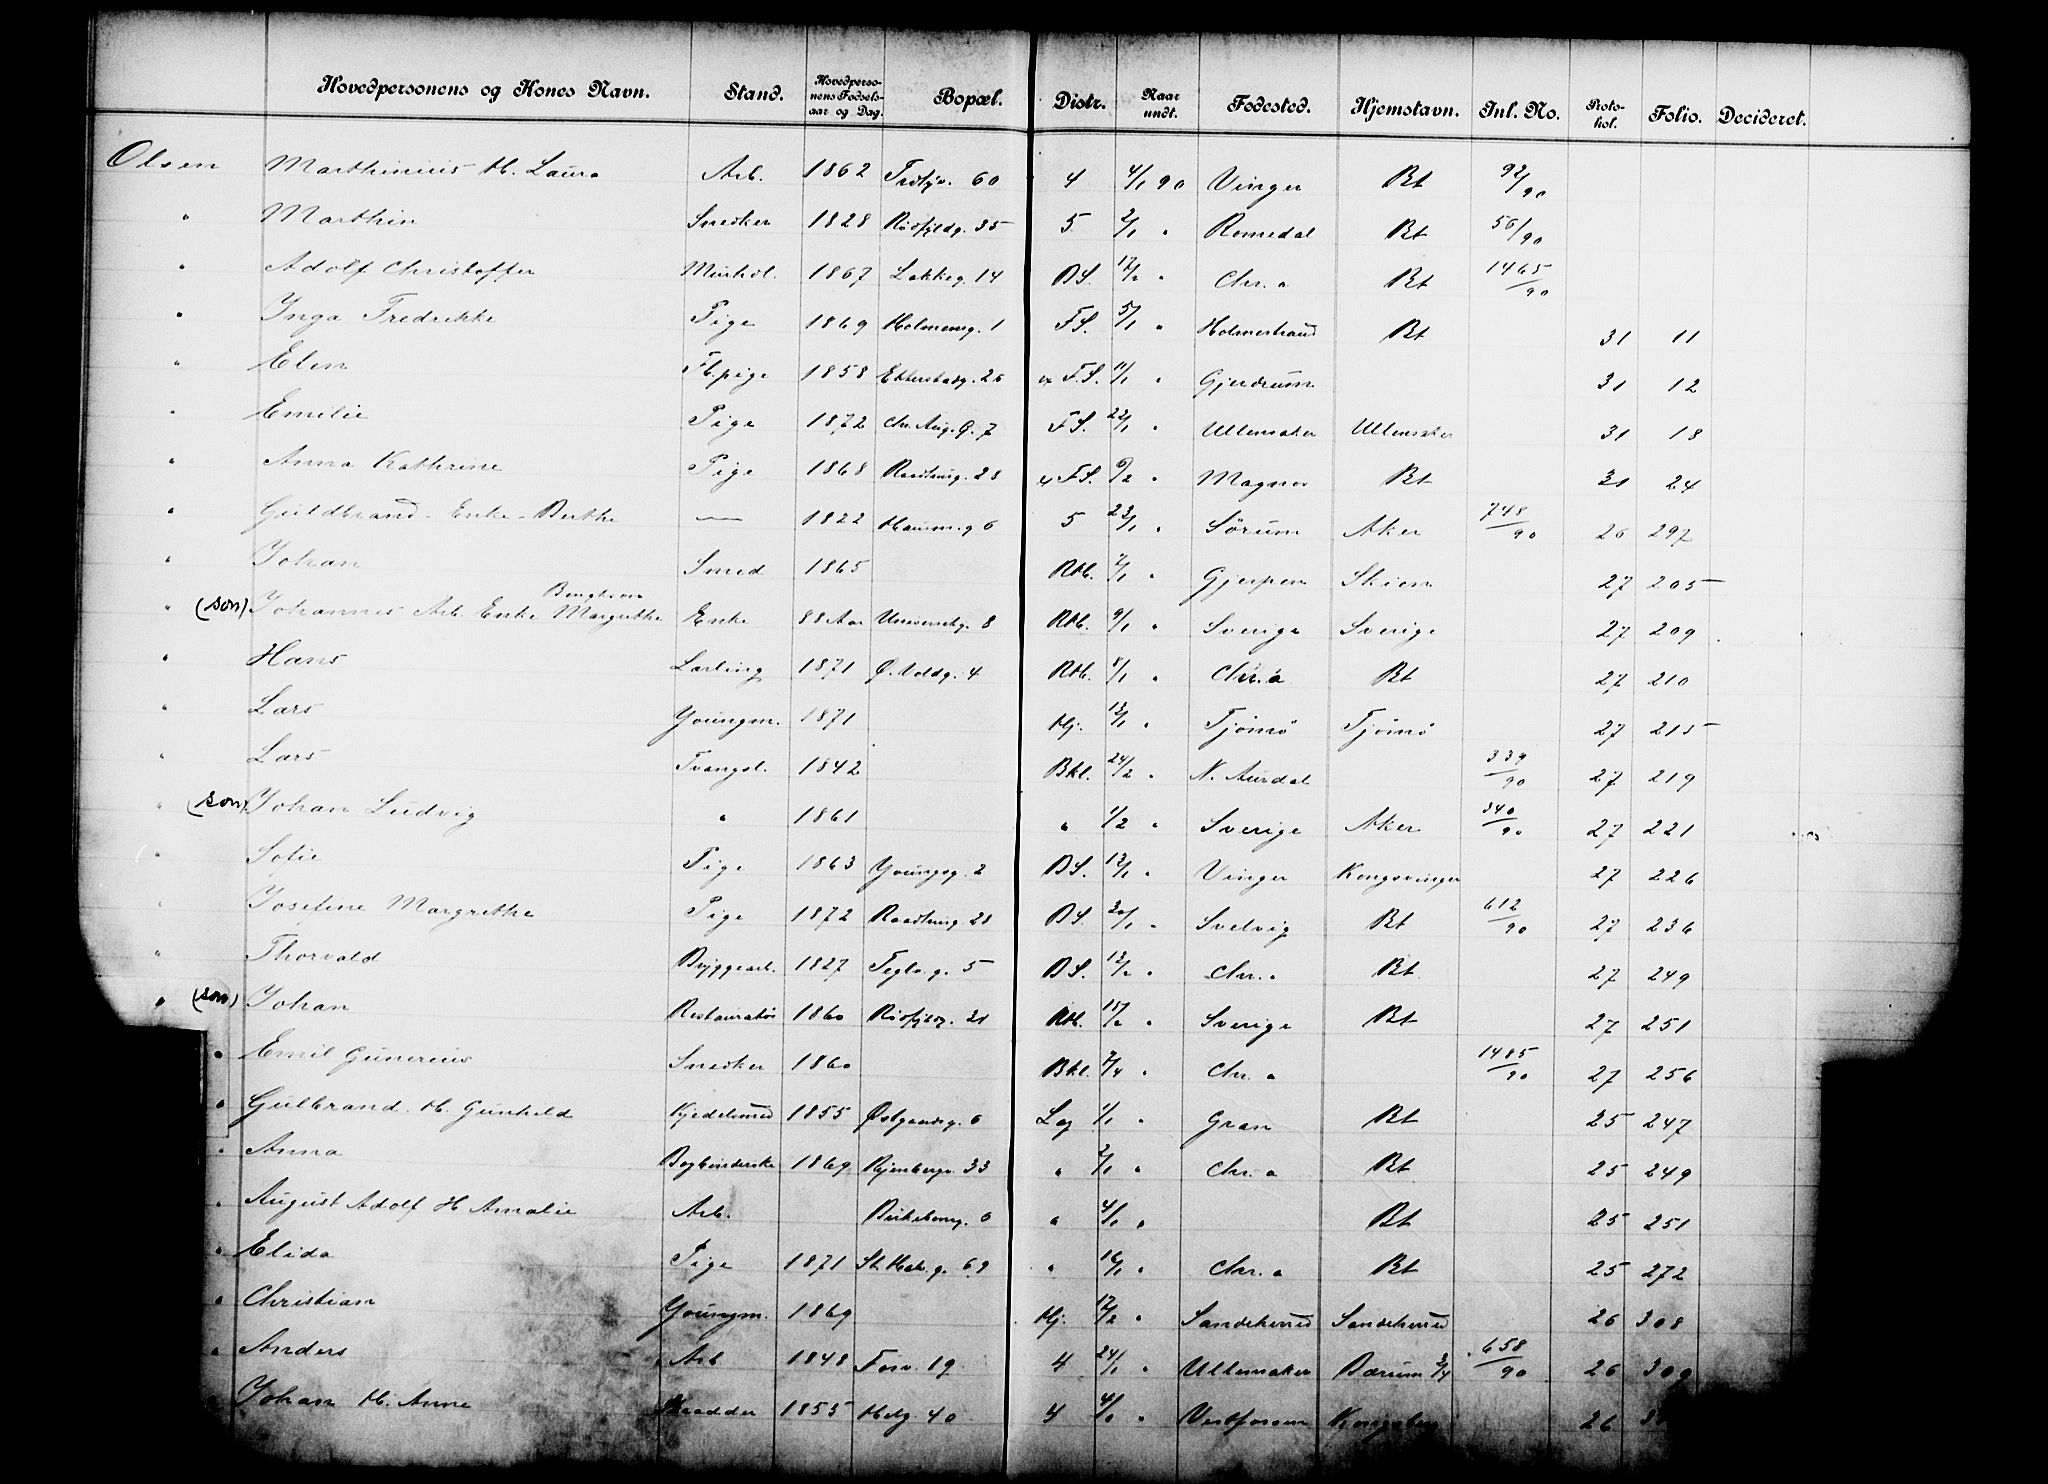 Hovedpersonens og Kones Navn. Stand. Hovedpersonens Fødselsaar og Dag. Bopæl. Distr. Naar undt. Fødested. Hjemstavn. Inl. No. Protokol. Folio. Decideret.
Olsen Marthinius H. Laura Arb. 1862 60 4 4/1 90 Vinger Bt 92/90
" Marthin Snedker 1828 Rødfyldg. 35 5 2/1 " Romedal Bt 56/90
" Adolf Christoffer 1867 Lakkeg. 14 BS. 12/2 " Chr.a Bt 1465/90
" Inga Fredrikke Pige 1869 Holmensg. 1 FS. 5/1 " Holmestrand Bt 31 11
" Elen Fb.pige 1858 Etterstadg. 26 FS. 11/1 " Gjerdrum 31 12
" Emilie Pige 1872 Chr. Aug. G. 7 FS. 22/1 " Ullensaker Ullensaker 31 18
" Anna Kathrine Pige 1868 Raadhusg. 28 FS. 6/2 " Magnor Bt 31 24
" Guldbrand - Enke - Berthe — 1822 Hausmg 6 5 23/1 " Sørum Aker 748/90 26 297
" Johan Smed 1865 Rth. 7/1 " Gjerpen Skien 27 205
" (son) Johannes Arb. Enke Bengtson Margrethe Enke 88 Aar Universitg. 8 Rth. 9/1 " Sverige Sverige 27 209
" Hans Lærling 1871 Ø. Voldg. 4 Rth. 8/1 " Chr.a Bt 27 210
" Lars Youngm. 1871 Hj. 13/1 " Tjømø Tjømø 27 215
" Lars Tvangsl. 1842 Bkl. 24/2 " N. Aurdal 339/90 27 219
" (son) Johan Ludvig " 1861 " 1/2 " Sverige Aker 340/90 27 221
" Sofie Pige 1863 Youngsg. 2 BS. 13/1 " Vinger Kongsvinger 27 226
" Josefine Margrethe Pige 1872 Raadhusg. 28 BS. 30/1 " Svelvig Bt 612/90 27 236
" Thorvald Bryggearb. 1827 Teglv.g. 5 BS. 13/2 " Chr.a Bt. 27 249
" (son) Johan Restauratør 1860 Rødfyldg. 21 Rth. 15/2 " Sverige Bt 27 251
" Emil Gunerius Snedker 1860 Bkl. 7/4 " Chr.a 1485/90 27 256
" Gulbrand. H. Gunhild Kjedelsmed 1855 Østgaardsg. 6 Lag 1/1 " Gran Bt 25 247
" Anna Bogbinderske 1869 33 " 2/1 " Chr.a Bt 25 249
" August Adolf H Amalie Arb. Birkebeng. 6 " 4/1 " Bt 25 251
" Elida Pige 1871 St. Halv. g. 69 " 16/1 " Chr.a Bt 25 272
" Christian Youngm. 1869 Hj. 12/2 " Sandeherred Sandeherred 26 308
" Anders Arb 1848 19 4 24/1 " Ullensaker Bærum 3/4 658/90 26 309
Johan H. Anne Skradder 1855 Helg. 40 4 4/1 " Vestfossen Kongsberg 26